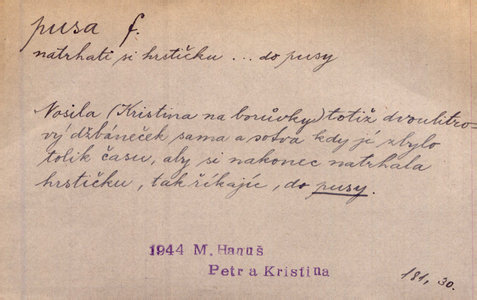 pusa f.
natrhati si hrstičku ... do pusy
Nosila (Kristina na borůvky) totiž dvoulitro-
vý džbáneček sama a sotva kdy jí zbylo
tolik času, aby si nakonec natrhala
hrstičku, tak říkajíc, do pusy.
1944 M. Hanuš
Petr a Kristina
181, 30.